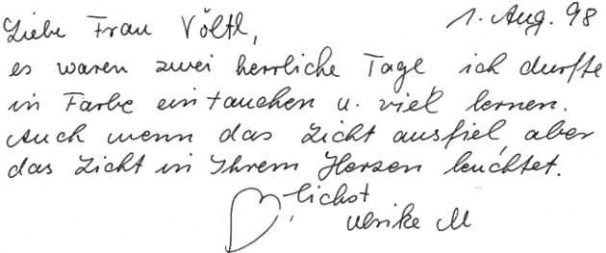 Liebe Frau Völtl, 1. Aug. 98
es waren zwei herrliche Tage ich durfte
in Farbe eintauchen u. viel lernen.
Auch wenn das Licht ausfiel, aber
das Licht in Ihrem Herzen leuchtet.
♡-lichst
Ulrike M